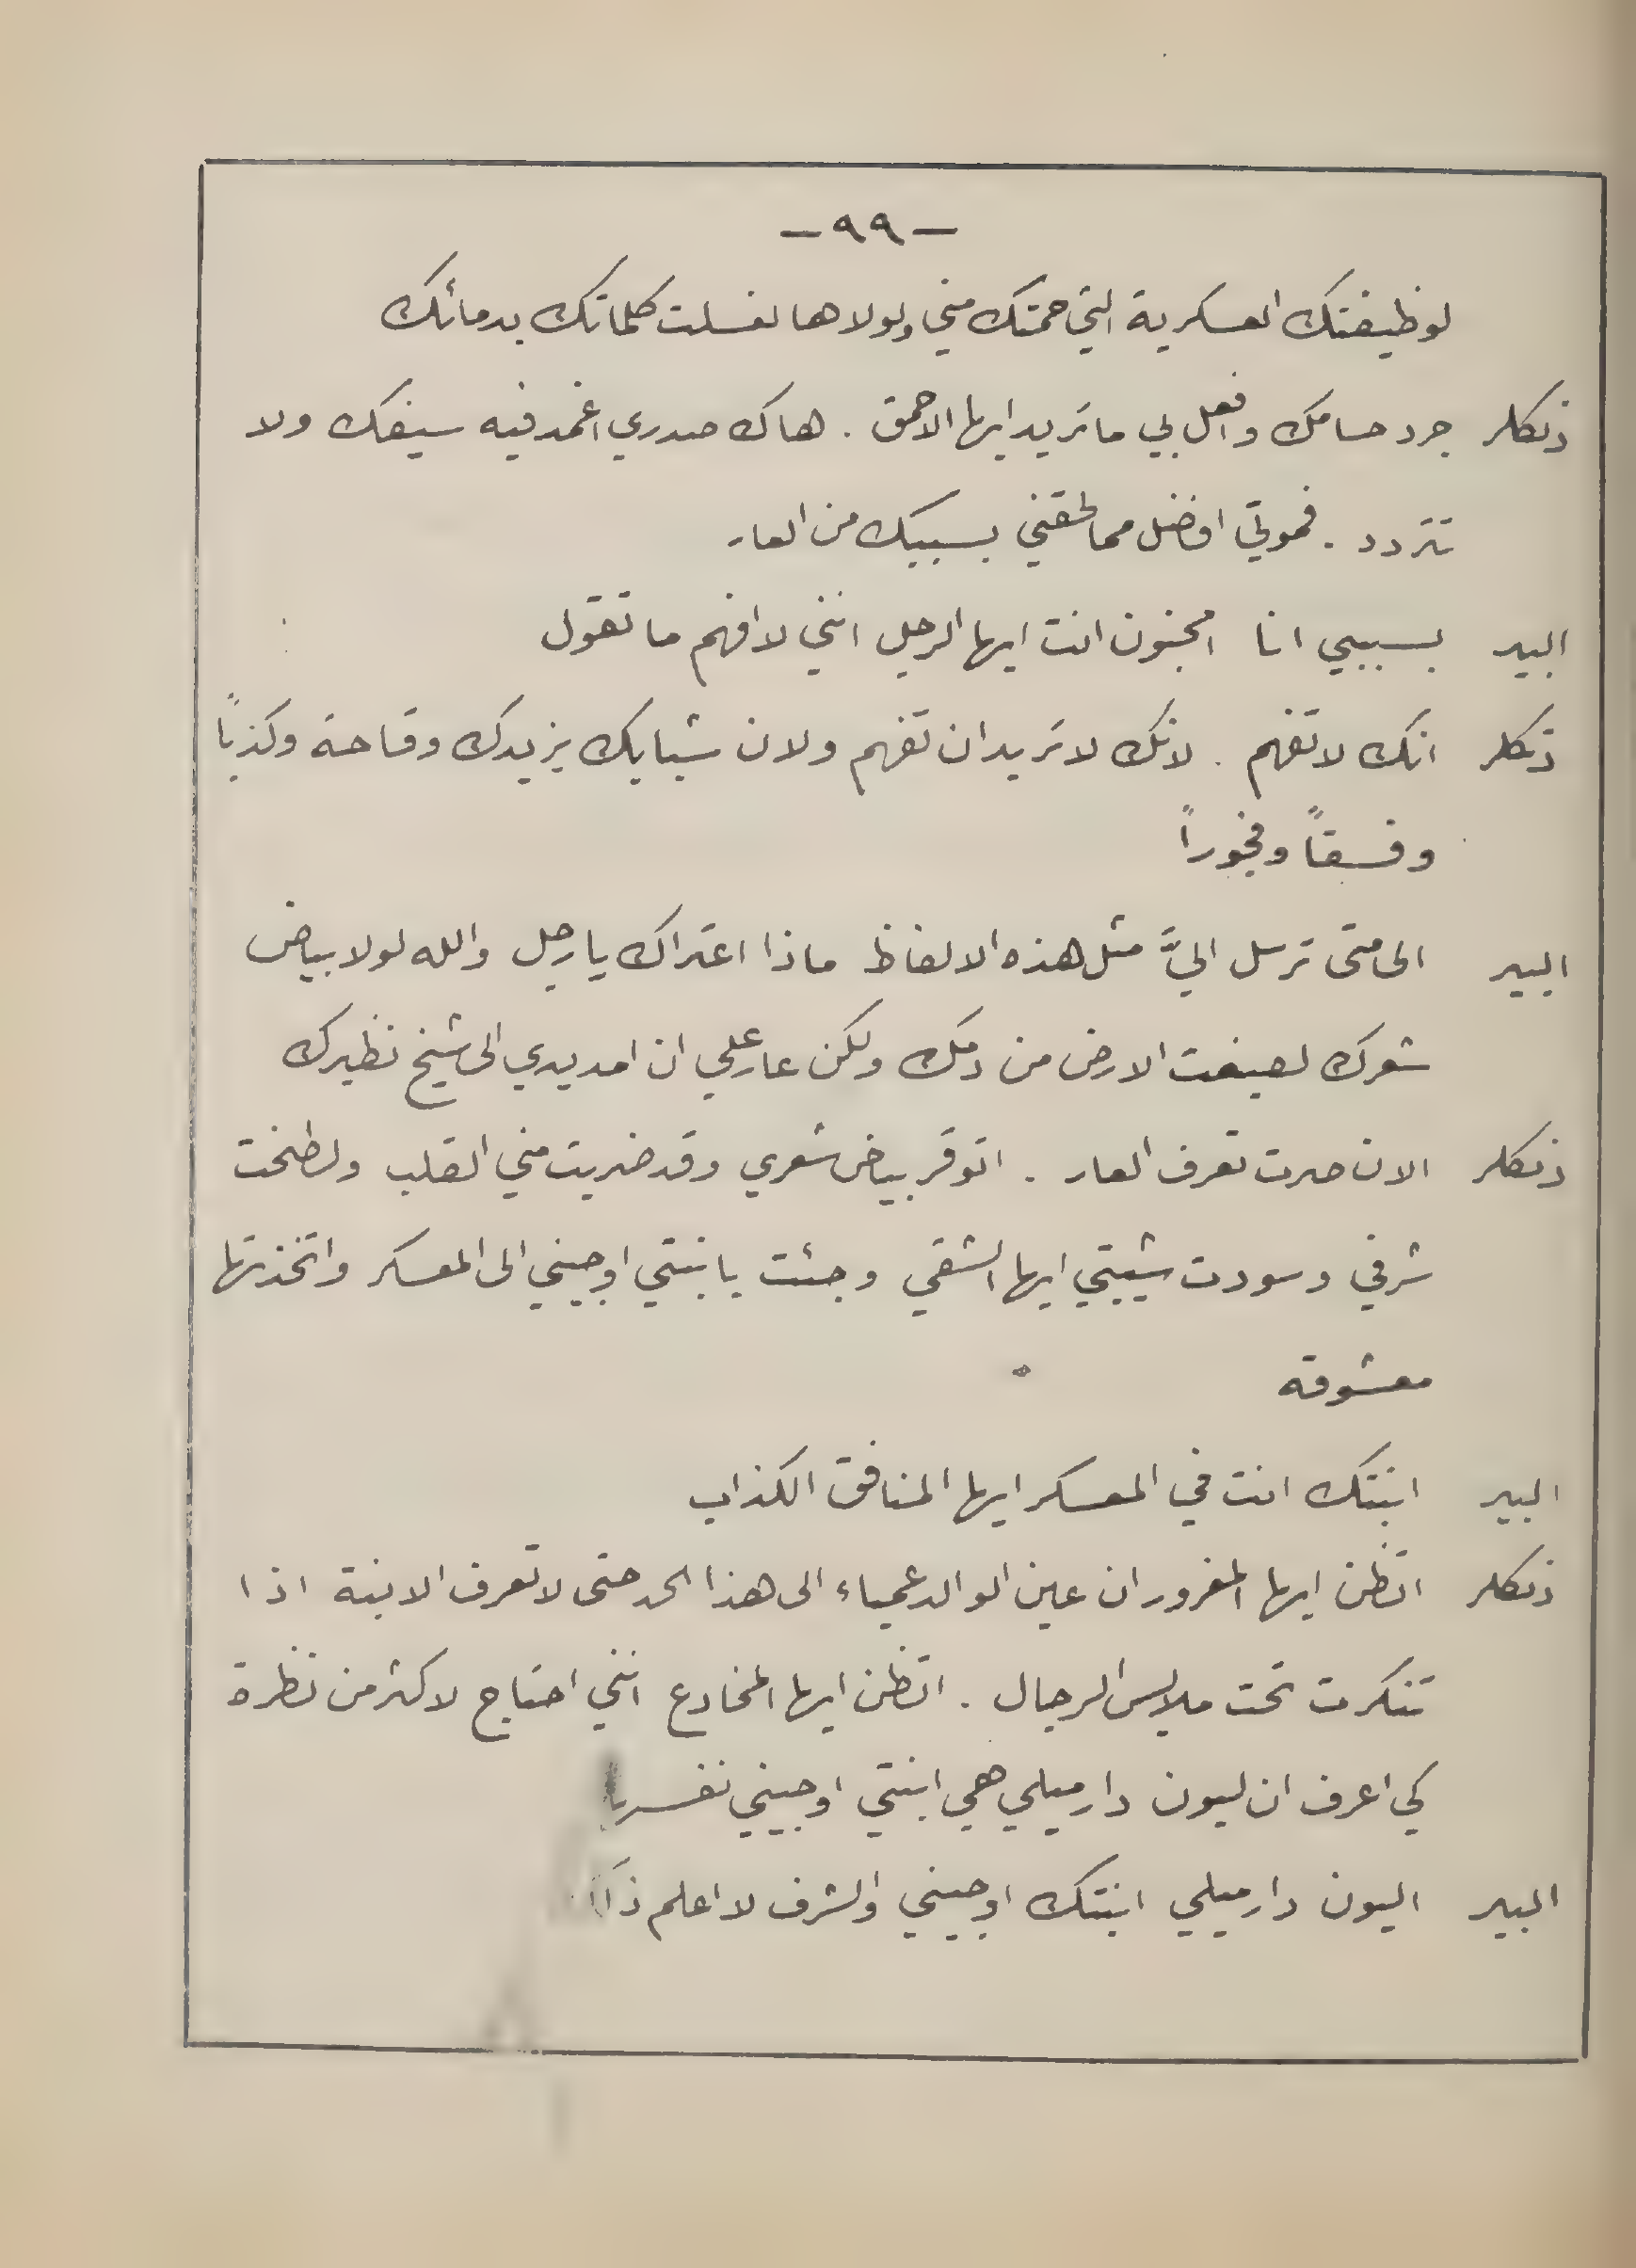 -٩٩-
لوظيفتك العسكرية التي حمتك مني ولولاها لغسلت كلماتك بدمائك
ذنكلر جرد حسامك وافعل بي ما تريد ايها الاحمق . هاك صدري اغمد فيه سيفك ولا
تتردد . فموتي افضل مما لحقني بسببك من العار
البير بسببي انا امجنون انت ايها الرجل انني لا افهم ما تقول
ذنكلر انك لا تفهم . لانك لا تريد ان تفهم ولان شبابك يزيدك وقاحة وكذباً
وفسقاً وفجوراً
البير الى متى ترسل اليَّ مثل هذه الالفاظ ماذا اعتراك يا رجل والله لولا بياض
شعرك لصبغت الارض من دمك ولكن عار علي ان امد يدي الى شيخ نظيرك
ذنكلر الان صرت تعرف العار . اتوقر بياض شعري وقد ضربت مني القلب ولطخت
شرفي وسودت شيبتي ايها الشقي وجئت بابنتي اوجيني الى المعسكر واتخذتها
معشوقة
البير ابنتك انت في المعسكر ايها المنافق الكذاب
ذنكلر اتظن ايها المغرور ان عين الوالد عمياء الى هذا الحد حتى لا تعرف الابنة اذا
تنكرت تحت ملابس الرجال . اتظن ايها المخادع انني احتاج لاكثر من نظرة
كي اعرف ان ليون دارميلي هي ابنتي اوجيني نفسها
البير اليون دارميلي ابنتك اوجيني والشرف لا اعلم ذلك